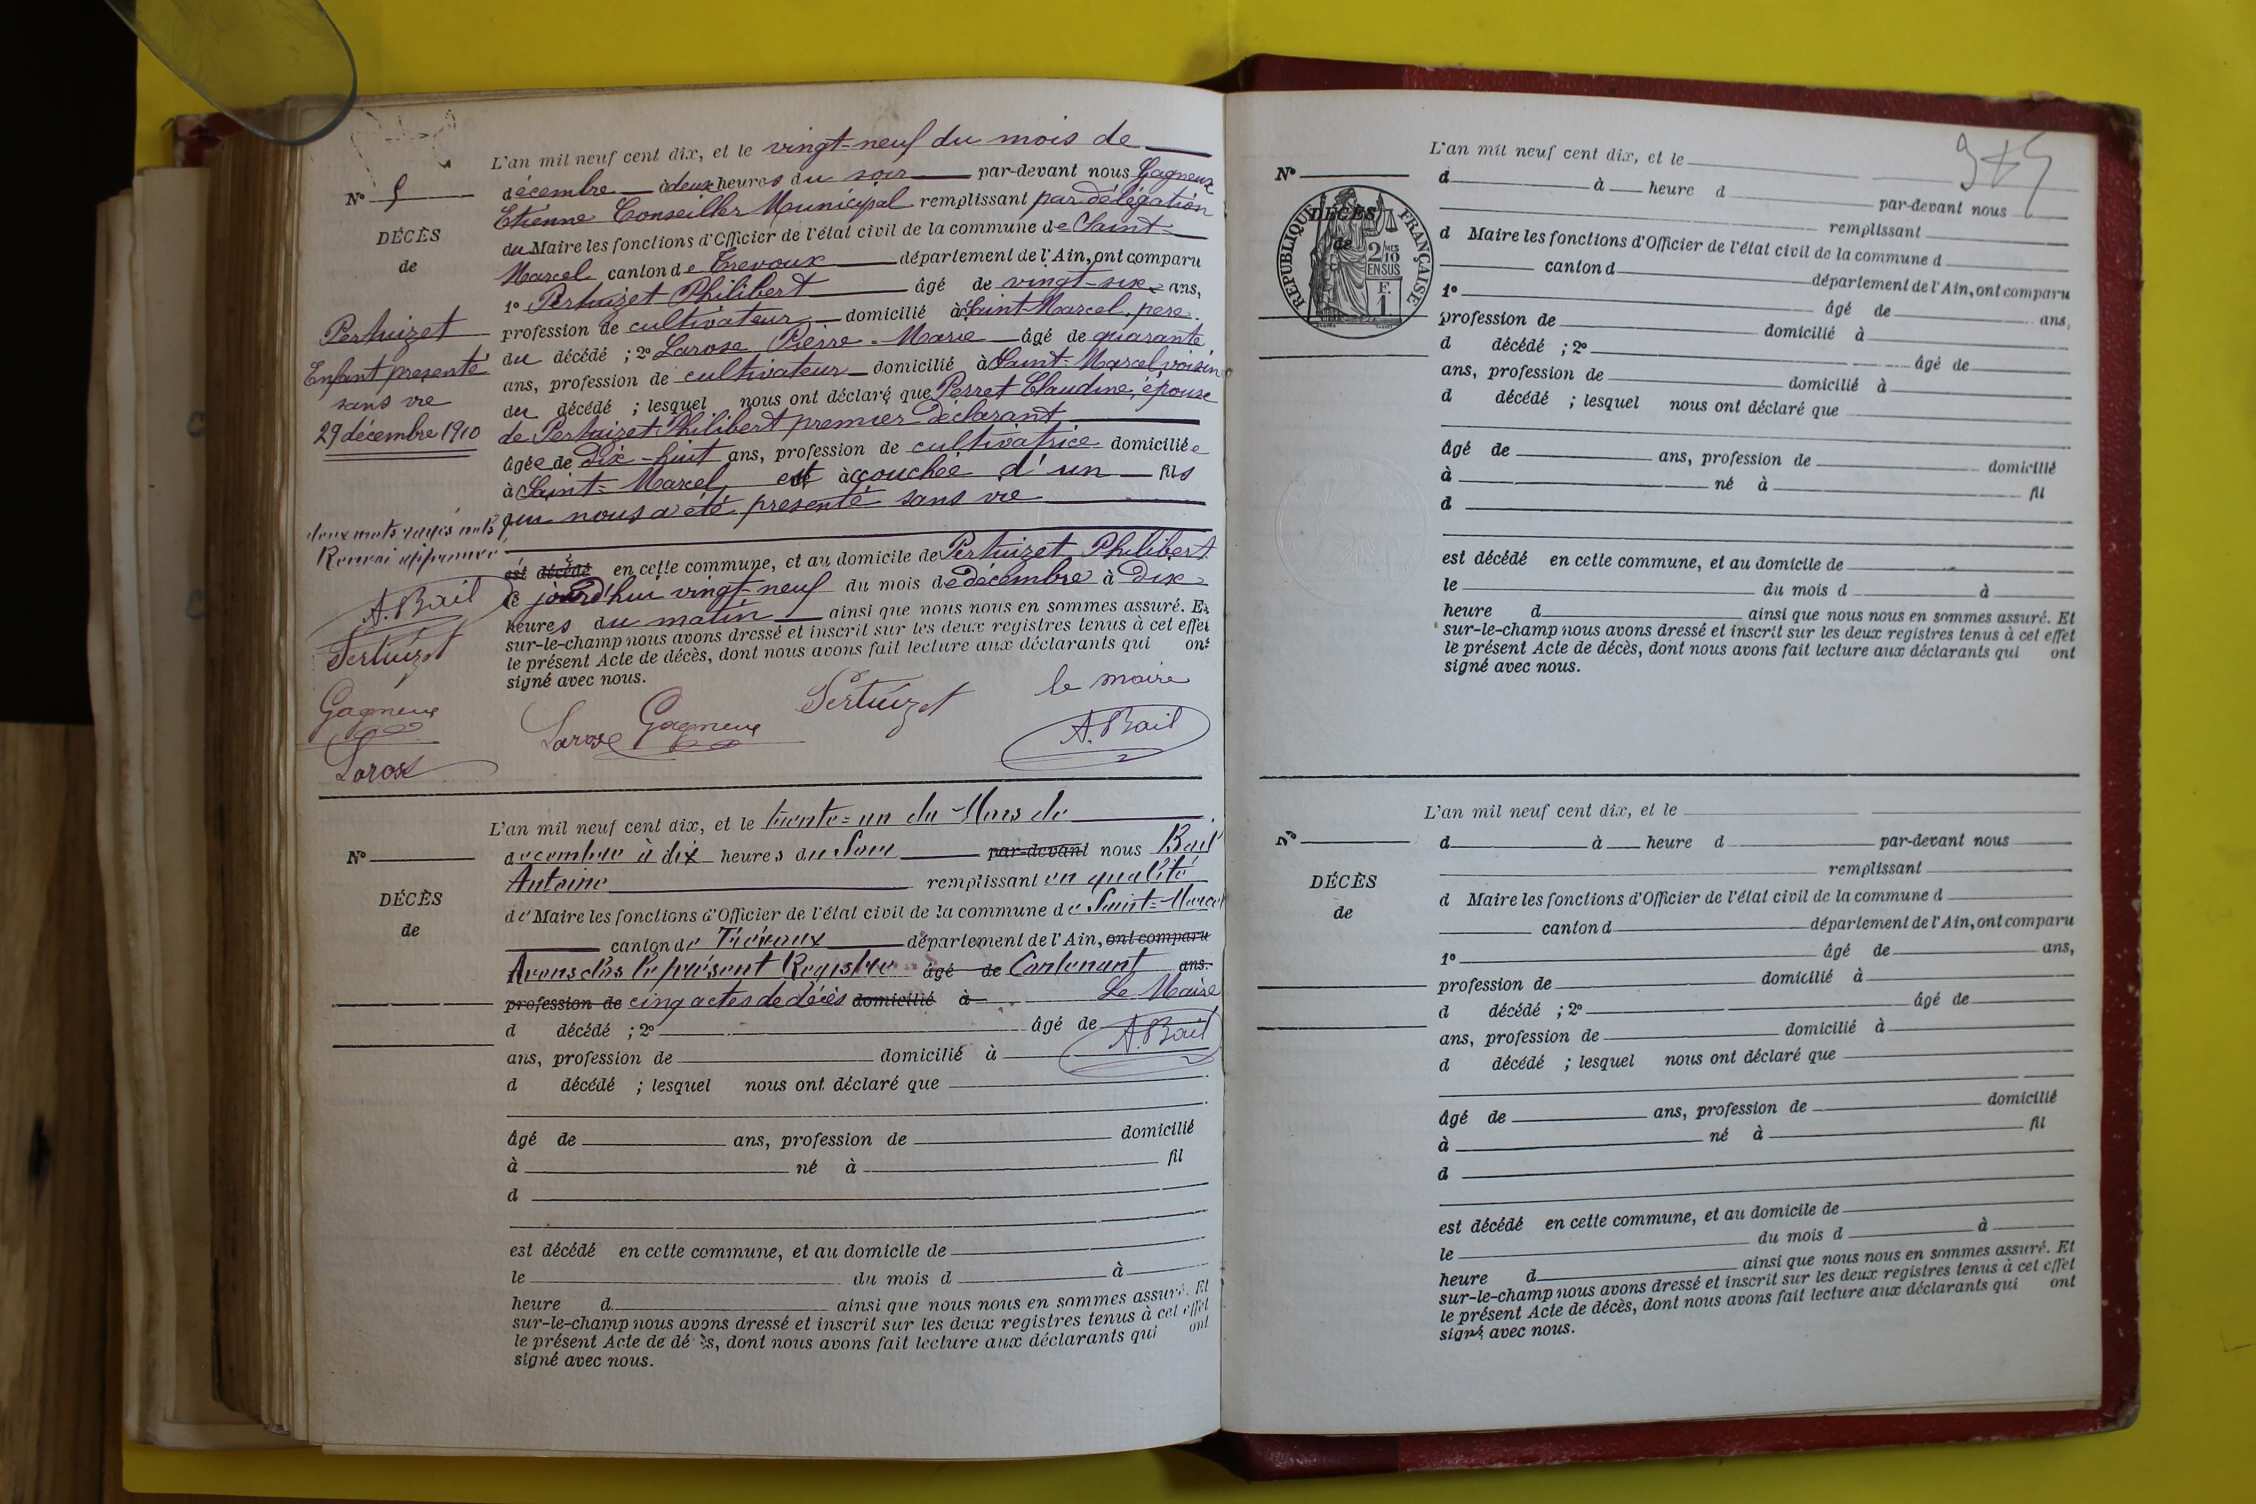 L'an mil neuf cent dix, et le vingt-neuf du mois de
N° 5
décembre à deux heures du soir par-devant nous Gagneux
Etienne Conseiller Municipal remplissant par délégation
DÉCÈS
de
du Maire les fonctions d'Officier de l'état civil de la commune de Saint-
Marcel canton de Trevoux département de l'Ain, ont comparu
1° Pertuizet Philibert âgé de vingt-six ans,
Pertuizet
profession de cultivateur domicilié à Saint-Marcel, pere
du décédé ; 2° Larose Pierre-Marie âgé de quarante
Enfant presenté
sans vie
29 décembre 1910
ans, profession de cultivateur domicilié à Saint-Marcel, voisin
du décédé ; lesquel nous ont déclaré que Perret Claudine, épouse
de Pertuizet Philibert premier Déclarant
âgée de Dix-huit ans, profession de cultivatrice domiciliée
à Saint-Marcel, est accouchée d'un fils
qui nous a été presenté sans vie
deux mots rayés nuls
Renvoi approuvé
A. Bail
Pertuizet
Gagneux
Larose
est décédé en cette commune, et au domicile de Pertuizet Philibert
le jourd'hui vingt-neuf du mois de décembre à Dix
heures du matin ainsi que nous nous en sommes assuré. Et
sur-le-champ nous avons dressé et inscrit sur les deux registres tenus à cet effet
le présent Acte de décès, dont nous avons fait lecture aux déclarants qui ont
signé avec nous.
Larose Gagneux Pertuizet le maire
A. Bail
L'an mil neuf cent dix, et le trente-un du Mois de
N°
décembre à dix heures du Soir par-devant nous Bail
Antoine remplissant en qualité
DÉCÈS
de
de Maire les fonctions d'Officier de l'état civil de la commune de Saint-Marcel
canton de Trévoux département de l'Ain, ont comparu
Avons clos le présent Registre âgé de Contenant ans.
profession de cinq actes de décès domicilié à Le Maire
d décédé ; 2° âgé de A. Bail
ans, profession de domicilié à
d décédé ; lesquel nous ont déclaré que
âgé de ans, profession de domicilié
à né à fil
d
est décédé en cette commune, et au domicile de
le du mois d à
heure d ainsi que nous nous en sommes assuré. Et
sur-le-champ nous avons dressé et inscrit sur les deux registres tenus à cet effet
le présent Acte de décès, dont nous avons fait lecture aux déclarants qui ont
signé avec nous.
L'an mil neuf cent dix, et le
N°
d à heure d par-devant nous
remplissant
RÉPUBLIQUE FRANÇAISE
2 MES
10
EN SUS
F.
1
DÉCÈS
de
d Maire les fonctions d'Officier de l'état civil de la commune d
canton d département de l'Ain, ont comparu
1° âgé de ans,
profession de domicilié à
d décédé ; 2° âgé de
ans, profession de domicilié à
d décédé ; lesquel nous ont déclaré que
âgé de ans, profession de domicilié
à né à fil
d
est décédé en cette commune, et au domicile de
le du mois d à
heure d ainsi que nous nous en sommes assuré. Et
sur-le-champ nous avons dressé et inscrit sur les deux registres tenus à cet effet
le présent Acte de décès, dont nous avons fait lecture aux déclarants qui ont
signé avec nous.
L'an mil neuf cent dix, et le
N°
d à heure d par-devant nous
remplissant
DÉCÈS
de
d Maire les fonctions d'Officier de l'état civil de la commune d
canton d département de l'Ain, ont comparu
1° âgé de ans,
profession de domicilié à
d décédé ; 2° âgé de
ans, profession de domicilié à
d décédé ; lesquel nous ont déclaré que
âgé de ans, profession de domicilié
à né à fil
d
est décédé en cette commune, et au domicile de
le du mois d à
heure d ainsi que nous nous en sommes assuré. Et
sur-le-champ nous avons dressé et inscrit sur les deux registres tenus à cet effet
le présent Acte de décès, dont nous avons fait lecture aux déclarants qui ont
signé avec nous.